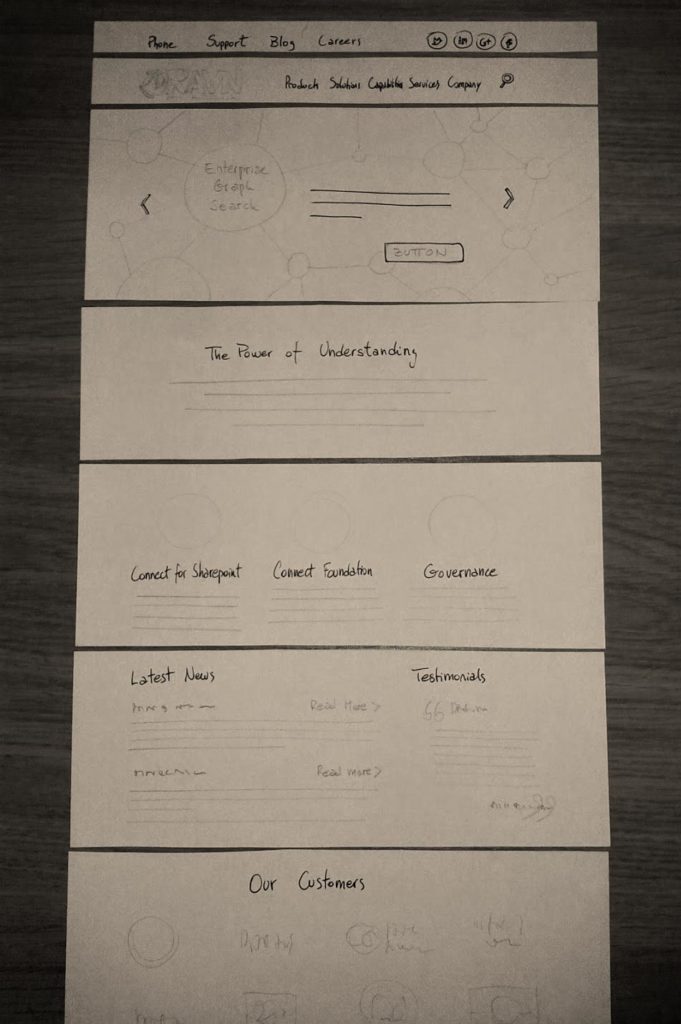 Phone Support Blog Careers in G+ f
Products Solutions Capabilities Services Company
Enterprise
Graph
Search
BUTTON
The Power of Understanding
Connect for Sharepoint Connect Foundation Governance
Latest News
Testimonials
Read More >
Read more >
Our Customers